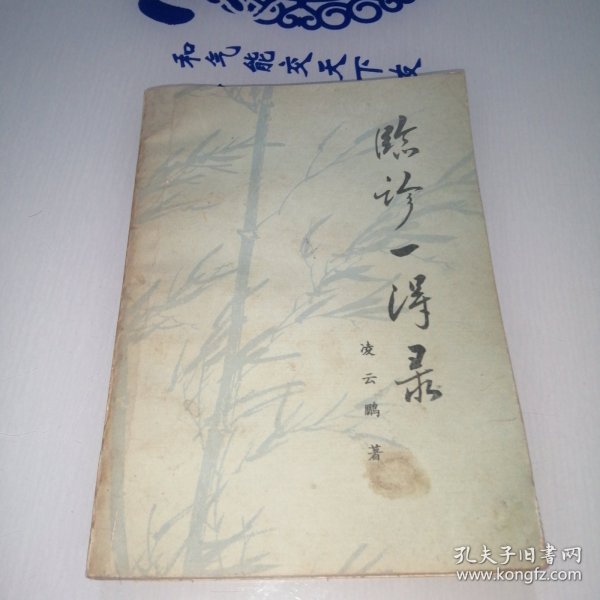 和气能交天下友
臨诊一得录
凌云鹏 著
孔夫子旧书网
www.kongfz.com